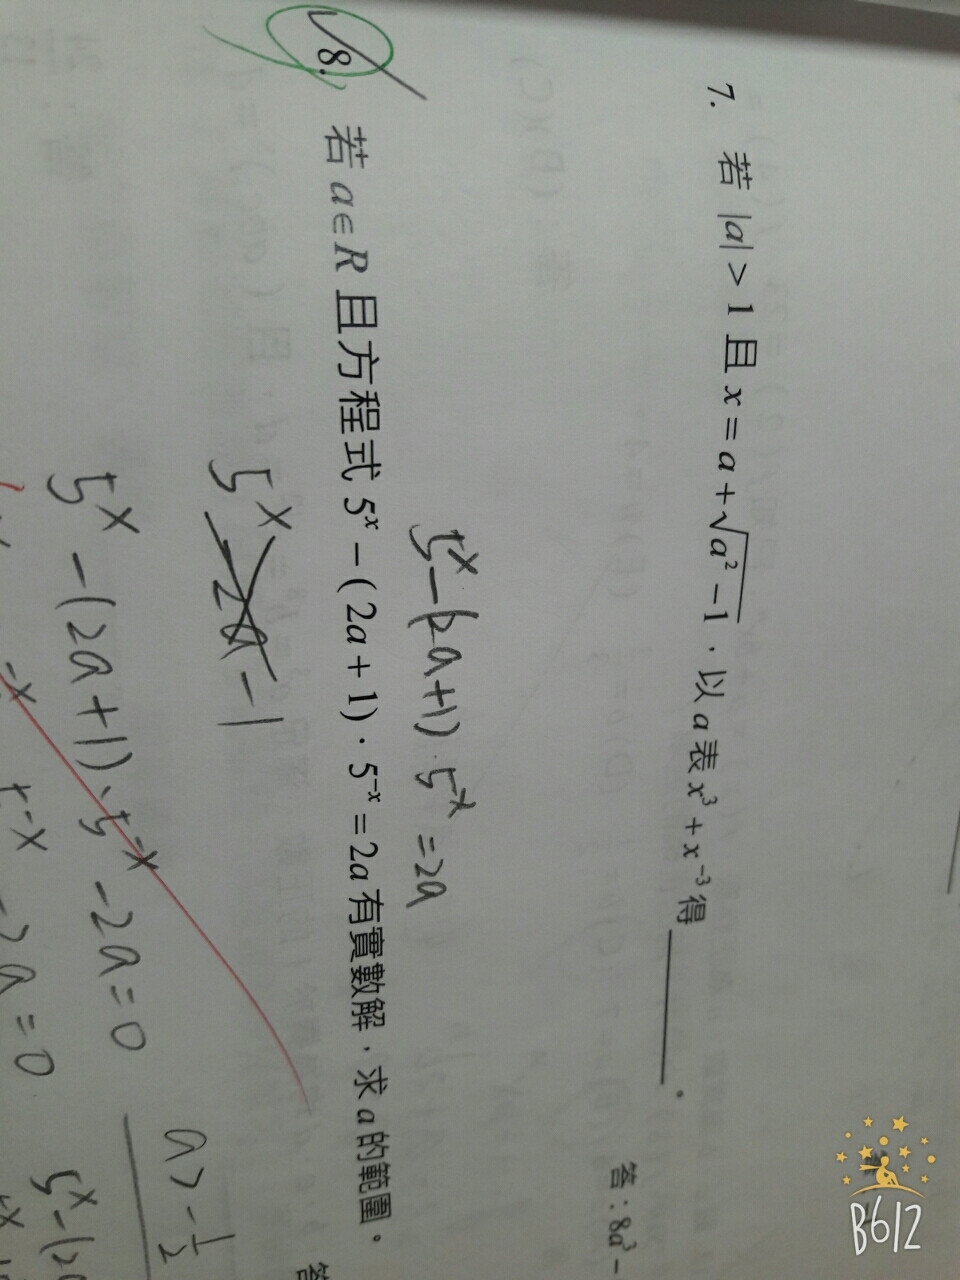 7. 若 |a| > 1 且 x = a + √(a² − 1)，以 a 表 x³ + x⁻³ 得 ______。
答：8a³ −
8. 若 a ∈ R 且方程式 5ˣ − (2a + 1)·5⁻ˣ = 2a 有實數解，求 a 的範圍。
答
5ˣ − (2a+1)·5⁻ˣ = 2a
5ˣ − 2a − 1
5ˣ − (2a+1)·5⁻ˣ − 2a = 0
− 2a = 0
a > −1/2
5ˣ − (2a
B612